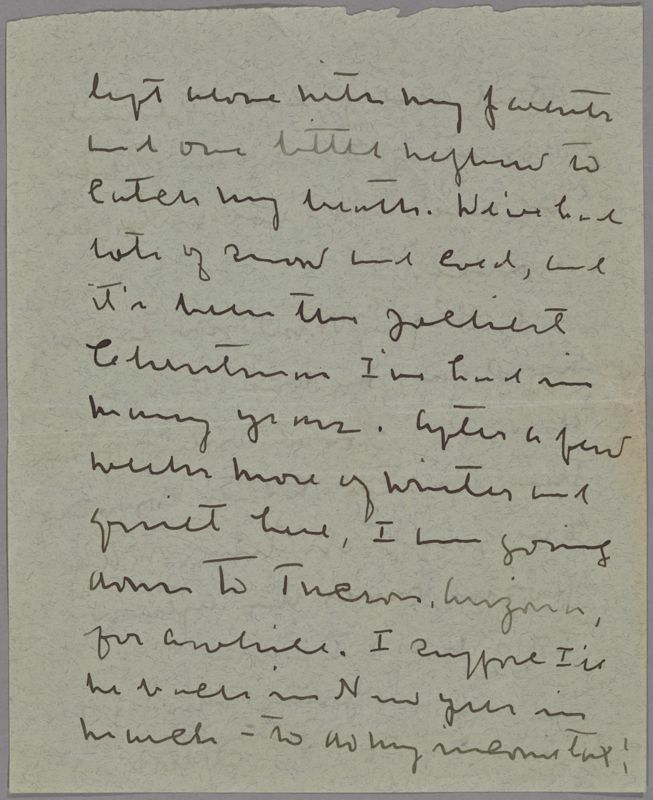 left alone with my parents
and one little nephew to
catch my breath. We've had
lots of snow and cold, and
it's been the jolliest
Christmas I've had in
many years. After a few
weeks more of winter and
quiet here, I am going
down to Tucson, Arizona,
for awhile. I suppose I'll
be back in New York in
March - to do my income tax!